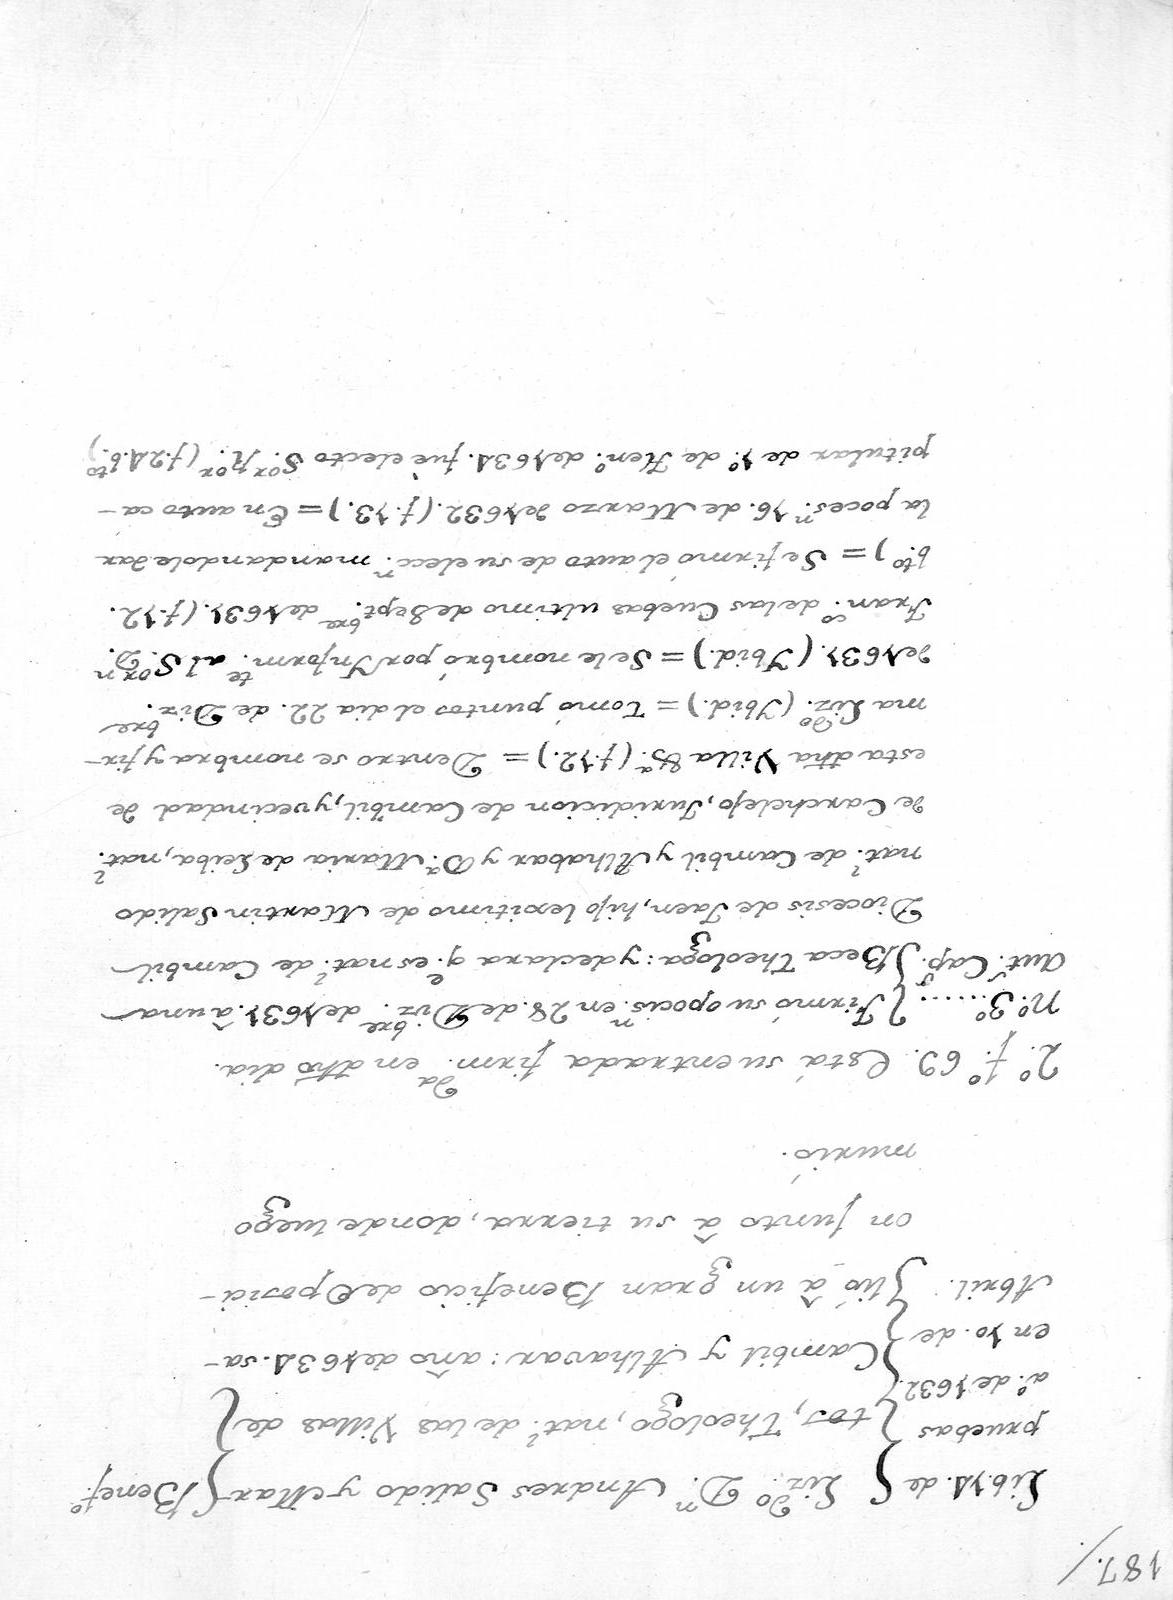 187./
Lib. 14. de { Liz.do D.n Andres Salido y Mar- } Benef.o
pruebas } tos, Theologo, nat.l de las Villas de {
a.o de 1632. { Cambil y Alhavar: año de 1634. sa-
en 10. de } lió â un gran Beneficio de Oposici-
Abril. } on junto â su tierra, donde luego
murió.
2.o f.o 69. Està su entrada firm.da en dho dia.
N.o 3.o ..... { Firmó su oposic.n en 28. de Diz.bre de 1631 â una
Aut.s Cap.s } Beca Theologa: y declara q.e es nat.l de Cambil
Diocesis de Jaen, hijo lexitimo de Martin Salido
nat.l de Cambil y Alhabar y D.a Maria de Leiba, nat.l
de Carchelejo, Juridicion de Cambil, y vecindad de
esta dha Villa &.a (f. 12.) = Dentro se nombra y fir-
ma Liz.do (Ibid.) = Tomó puntos el dia 22. de Diz.bre
de 1631. (Ibid.) = Se le nombró por Inform.te al S.or D.n
Fran.co de las Cuebas ultimo de Sept.bre de 1631. (f. 12.
b.to) = Se firmó el auto de su elecc.n mandandole dar
la poces.n 16. de Marzo de 1632. (f. 13.) = En auto ca-
pitular de 1.o de Hen.o de 1634. fuè electo S.or R.or (f. 24. b.to)